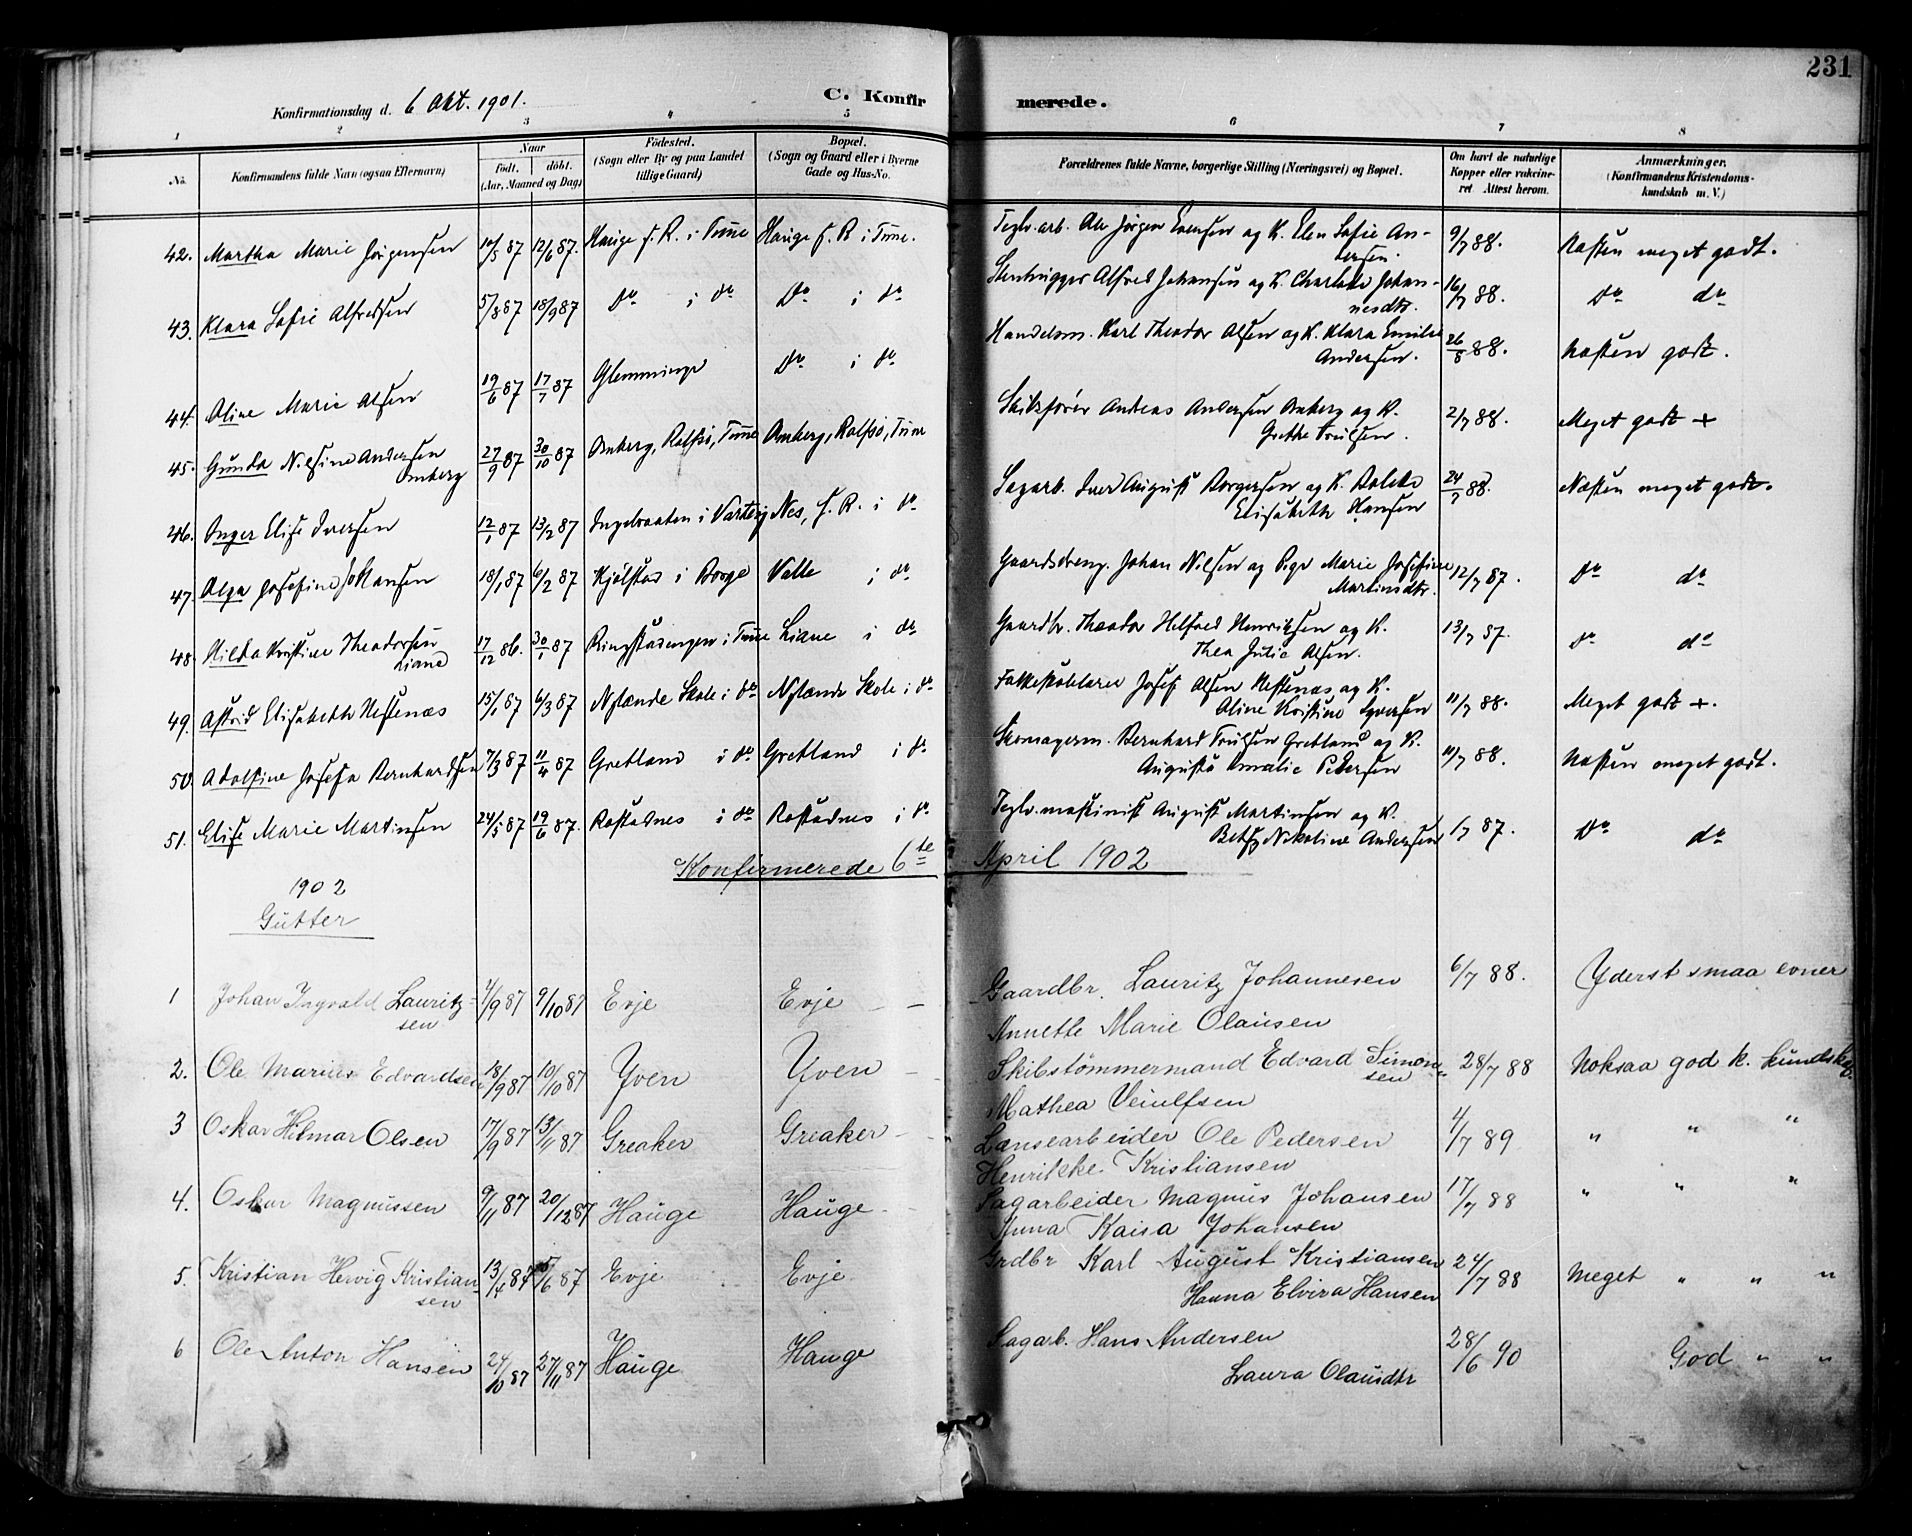 231
Konfirmationsdag d. 6 Okt. 1901.
C. Konfirmerede.
1 2 3 4 5 6 7 8
No. Konfirmandens fulde Navn (ogsaa Efternavn) Naar født. døbt. (Aar, Maaned og Dag) Fødested. (Sogn eller By og paa Landet tillige Gaard) Bopæl. (Sogn og Gaard eller i Byerne Gade og Hus-No. Forældrenes fulde Navne, borgerlige Stilling (Næringsvei) og Bopæl. Om havt de naturlige Kopper eller vakcineret Attest herom. Anmærkninger. (Konfirmandens Kristendomskundskab m. V.)
42. Martha Marie Jørgensen 10/5 87 12/6 87. Hauge f. R. i Tune Hauge f. R i Tune. Teglv.arb. Ole Jørgen Evensen og K. Elen Sofie An- 9/7 88. Næsten meget godt.
dersen.
43. Klara Sofie Alfredsen 5/8 87 18/9 87 Do i do Do i do Stenhugger Alfred Johansen og K. Charlotte Johan- 16/7 88. Do do
nesdtr.
44. Aline Marie Olsen 19/6 87 17/7 87 Glemminge Do i do Handelsm. Karl Theodor Olsen og K. Klara Emilie 26/8 88. Næsten godt.
Andersen.
45. Gunda Nilsine Andersen 27/9 87 30/10 87 Omberg, Rolfsø, Tune Omberg, Rolfsø, Tune Skibsfører Andreas Andersen Omberg og K. 2/7 88. Meget godt +
Omberg Grethe Trulsen.
46. Inger Elise Iversen 12/1 87 13/2 87 Ingelsraaten i Varteig Nes, f. R. i do Sagarb. Iver August Borgersen og K. Bolette 24/7 88. Næsten meget godt.
Elisabeth Hansen
47. Olga Josefine Johansen 18/1 87 6/2 87 Kjølstad i Borge Valle i do Gaardsdreng Johan Nilsen og Pige Marie Josefine 12/7 87. Do do
Martinsdtr.
48. Hilda Kristine Theodorsen 17/12 86. 30/1 87 Ringstadengen i Tune Liane i do Gaardbr. Theodor Helfred Henriksen og K. 13/7 87. Do do
Liane Thea Julie Olsen.
49. Astrid Elisabeth Nestenæs 15/1 87 6/3 87 Nylænde Skole i do Nylænde Skole i do Folkeskolelærer Josef Olsen Nestenæs og K. 11/7 88. Meget godt +.
Aline Kristine Syversen
50. Adolfine Josefa Bernhardsen 7/3 87 11/4 87 Gretland i do Gretland i do Skomagerm. Bernhard Trulsen Gretland og K. 11/7 88. Næsten meget godt.
Augusta Amalie Pedersen
51. Elise Marie Martinsen 24/5 87 19/6 87. Rostadnes i do Rostadnes i do Teglv.maskinist August Martinsen og K. 1/7 87. Do do
Betsy Nikoline Andersen
Konfirmerede 6te April 1902
1902
Gutter
1 Johan Ingvald Lauritz- 7/9 87 9/10 87 Evje Evje Gaardbr. Lauritz Johannesen 6/7 88. Yderst smaa evner
sen Annette Marie Olausen
2. Ole Marius Edvardsen 18/9 87 10/10 87 Yven Yven Skibstømmermand Edvard Simon- 28/7 88 Noksaa god k. kundskap.
sen
Mathea Veiulfsen
3 Oskar Hilmar Olsen 17/9 87 13/11 87 Greaker Greaker Lænsearbeider Ole Pedersen 4/7 89 " " "
Henrikke Kristiansen
4. Oskar Magnussen 9/11 87 20/12 87 Hauge Hauge Sagarbeider Magnus Johansen 17/7 88 " " "
Anna Kaisa Johansen
5. Kristian Hervig Kristian- 13/4 87 5/6 87 Evje Evje Grdbr Karl August Kristiansen 24/7 88 Meget " " "
sen Hanna Elvira Hansen
6 Ole Anton Hansen 24/10 87 27/11 87 Hauge Hauge Sagarb. Hans Andersen 28/6 90 God " "
Laura Olausdtr